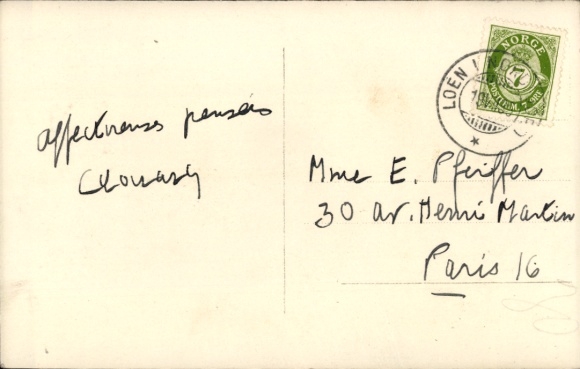 affectueuses pensées
Mme E. Pfeiffer
30 av. Henri Martin
Paris 16
NORGE
POSTFRIM. 7 ØRE
LOEN I NORDFJ